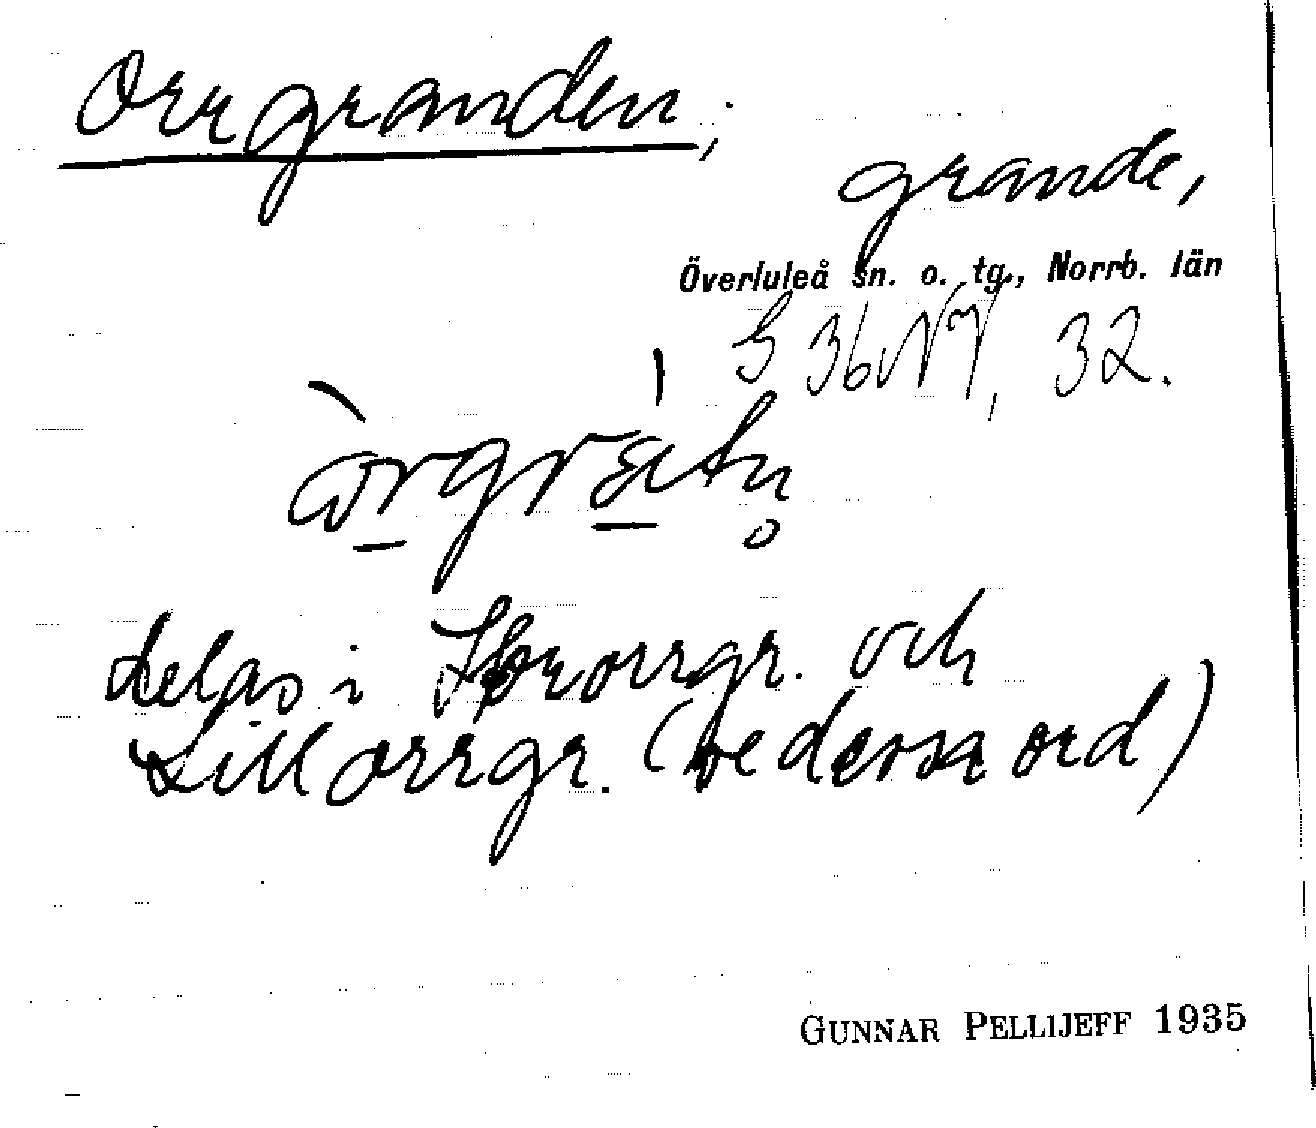 Orrgranden,
grande,
Överluleå sn. o. tg., Norrb. län
S 36 NV, 32.
delas i Stororrgr. och
Lillorrgr. (se dessa ord)
GUNNAR PELLIJEFF 1935